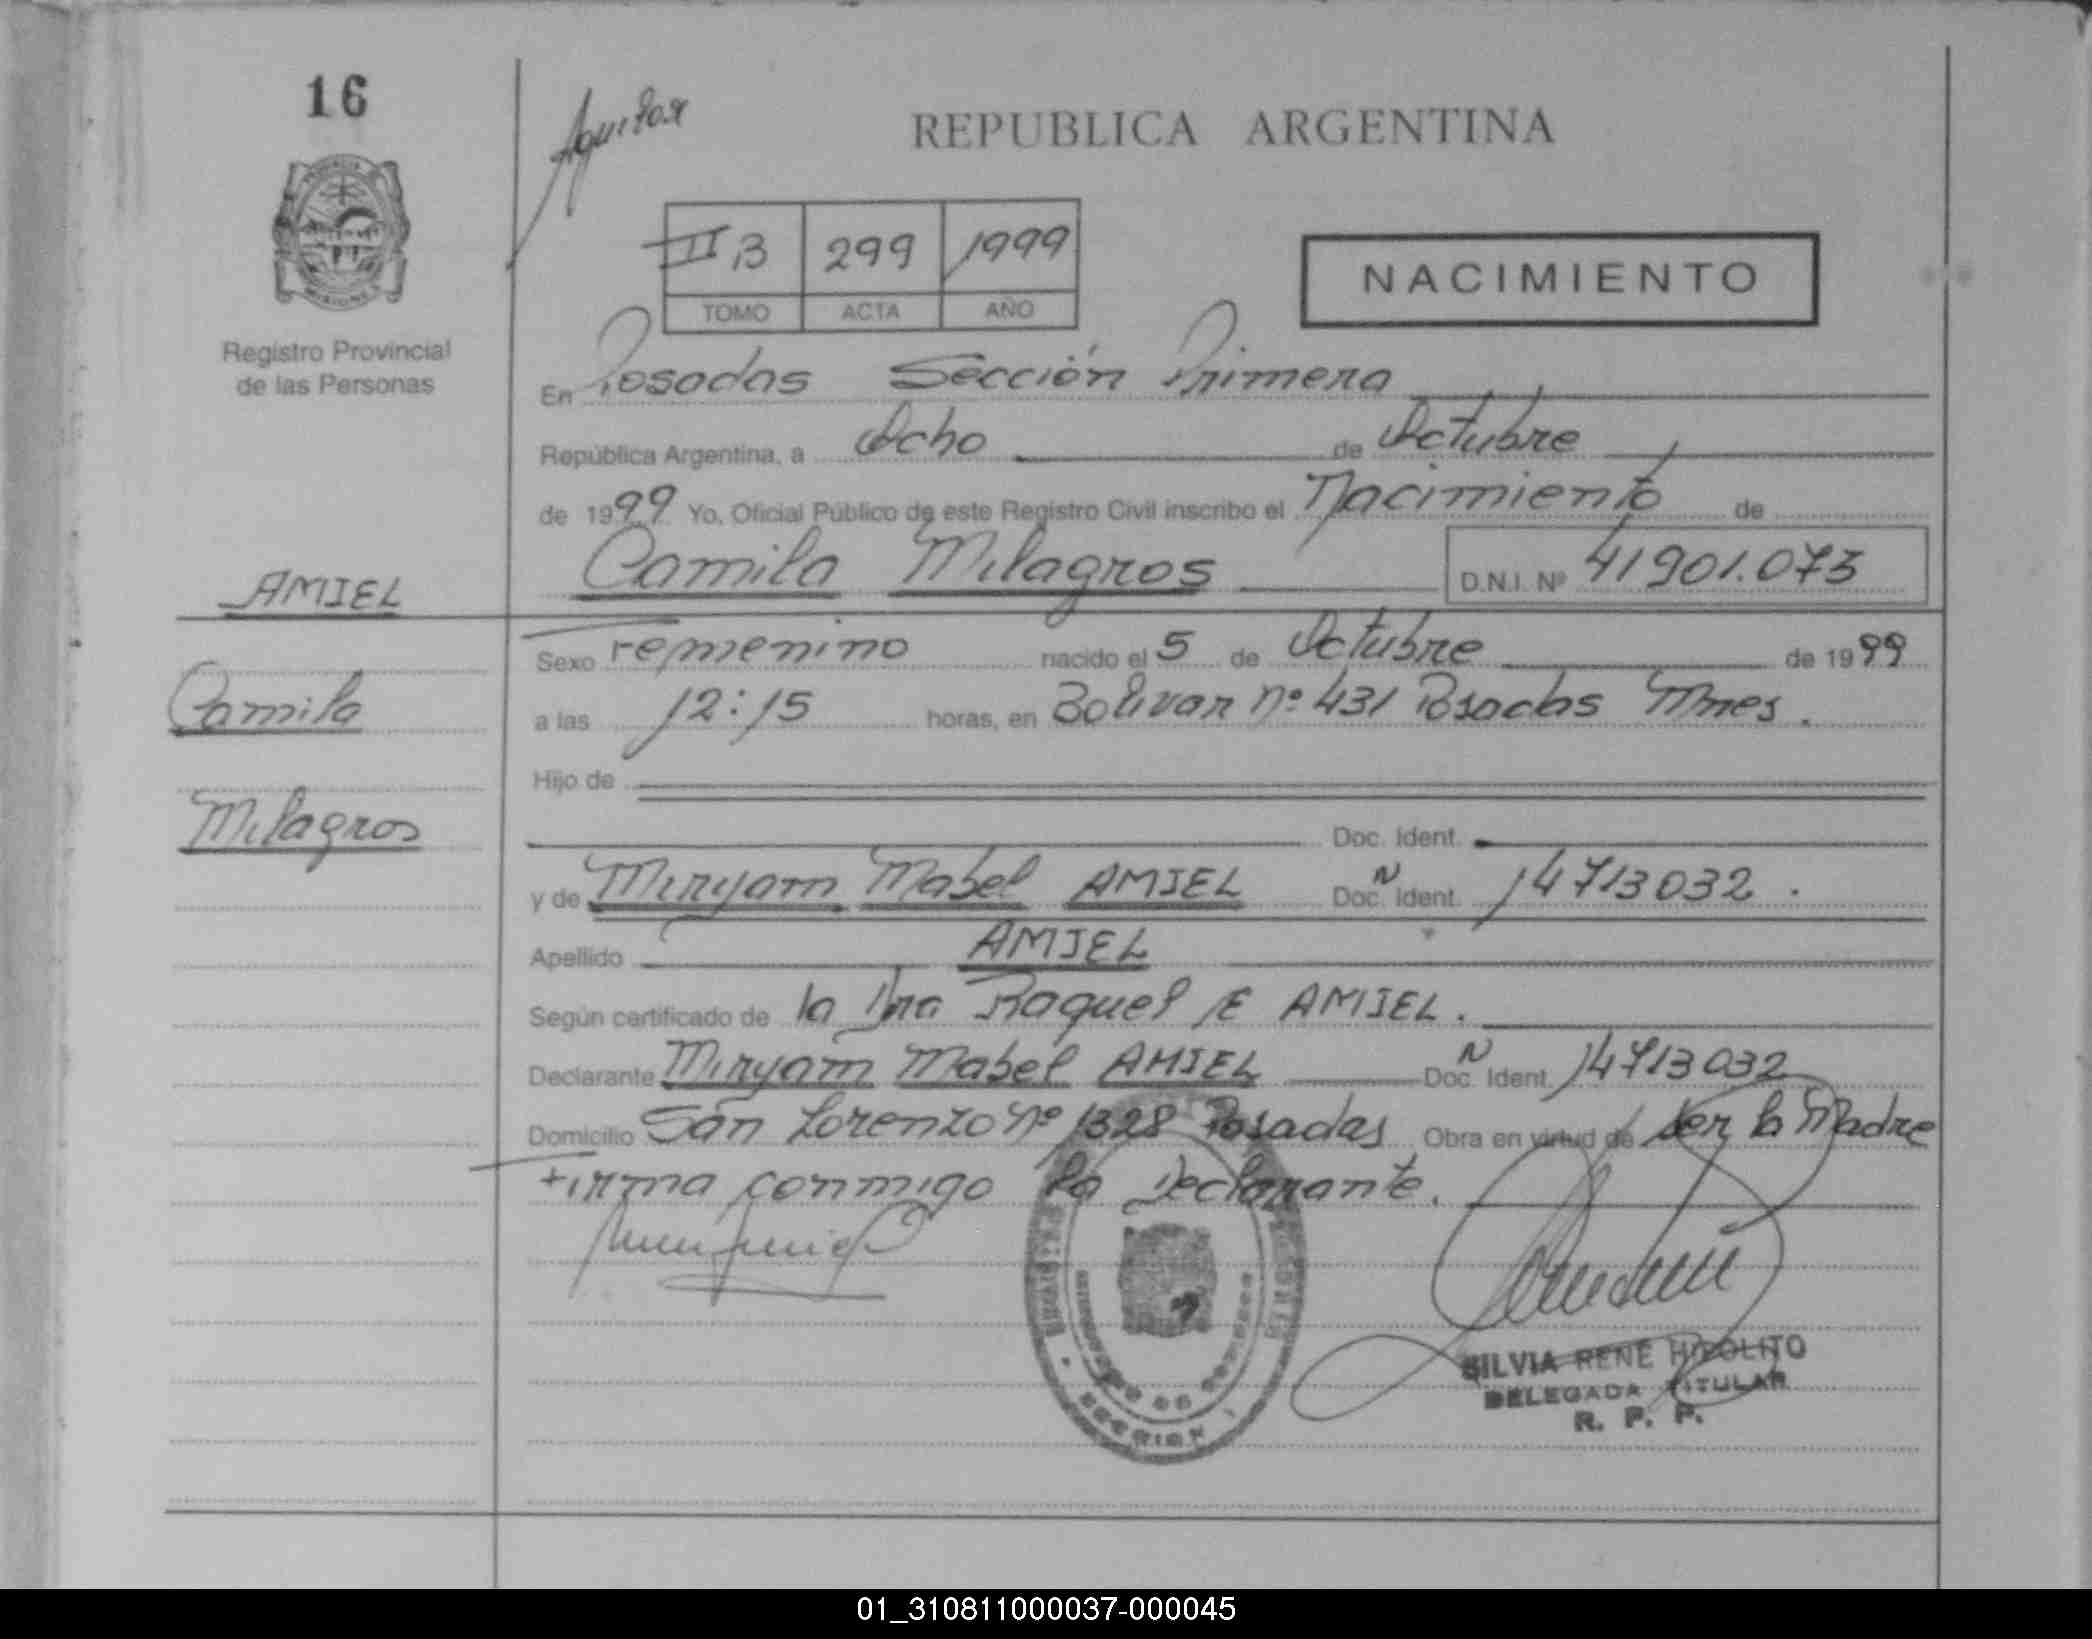 16
REPUBLICA ARGENTINA
II B 299 1999
TOMO ACTA AÑO
NACIMIENTO
Registro Provincial
de las Personas
En Posadas Sección Primera
República Argentina, a Ocho de Octubre
de 1999 Yo, Oficial Público de este Registro Civil inscribo el Nacimiento de
Camila Milagros D.N.I. Nº 41901.073
AMIEL
Camila
Milagros
Sexo Femenino nacido el 5 de Octubre de 1999
a las 12:15 horas, en Bolivar nº 431 Posadas Mnes.
Hijo de
Doc. Ident.
y de Miryam Mabel AMIEL Doc. N Ident. 14713032.
Apellido AMIEL
Según certificado de la Dra Raquel E AMIEL.
Declarante Miryam Mabel AMIEL Doc. N Ident. 14713032
Domicilio San Lorenzo nº 1328 Posadas Obra en virtud de ser la Madre
Firma conmigo la Declarante.
SILVIA RENE HIPOLITO
DELEGADA TITULAR
R. P. P.
SECCION 1
01_310811000037-000045